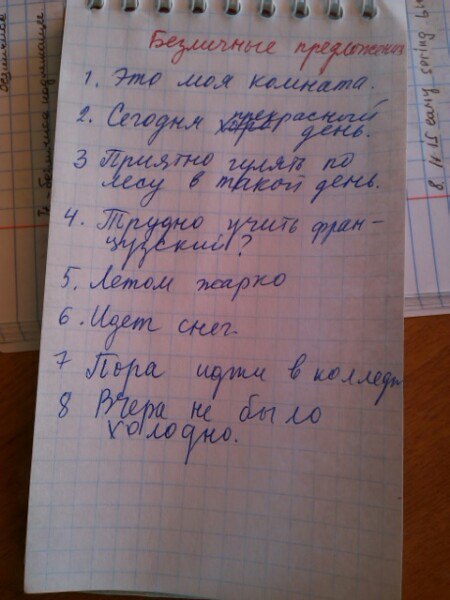 Безличные предложения
1. Это моя комната.
прекрасный
2. Сегодня день.
3 Приятно гулять по
лесу в такой день.
4. Трудно учить фран-
цузский?
5. Летом жарко
6. Идет снег.
7 Пора идти в колледж
8 Вчера не было
холодно.
8. 11 15 early spring